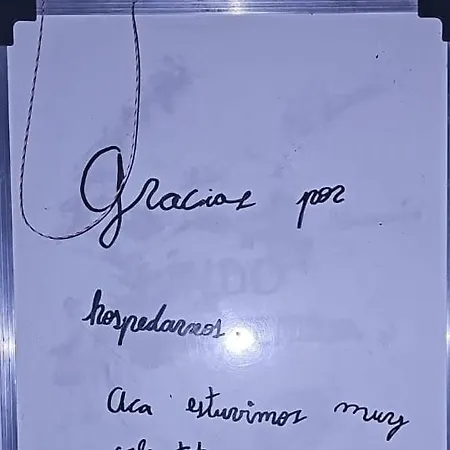 Gracias por
hospedarnos.
Aca estuvimos muy